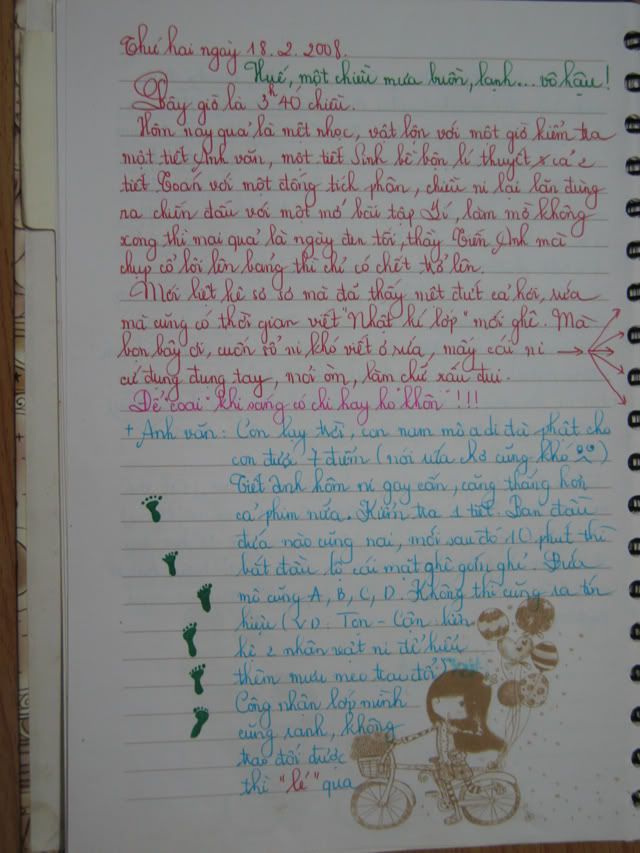 Thứ hai ngày 18.2.2008.
Huế, một chiều mưa buồn, lạnh... vô hậu!
Bây giờ là 3h40 chiều.
Hôm nay quả là mệt nhọc, vật lộn với một giờ kiểm tra
một tiết Anh văn, một tiết Sinh bề bộn lí thuyết, cả 2
tiết Toán với một đống tích phân, chiều ni lại lăn đùng
ra chiến đấu với một mớ bài tập Lí, làm mờ không
xong thì mai quả là ngày đen tối, thầy Tiến Anh mà
chụp cổ lôi lên bảng thì chỉ có chết trở lên.
Mới liệt kê sơ sơ mà đã thấy mệt đứt cả hơi, rứa
mà cũng có thời gian viết "Nhật kí lớp" mới ghê. Mà
bọn bây ơi, cuốn sổ ni khó viết ở rứa, mấy cái ni
cứ đụng đụng tay, mỏi òm, làm chữ xấu đui.
Để "coai" khi sáng có chi hay ho "khôn"!!!
+ Anh văn: Con lạy trời, con nam mô a di đà phật cho
con được 7 điểm (nói rứa chơ cũng khó)
Tiết Anh hôm ni gay cấn, căng thẳng hơn
cả phim nữa. Kiểm tra 1 tiết. Ban đầu
đứa nào cũng nai, mới sau đó 10 phút thì
bắt đầu lộ cái mặt ghê gớm ghê. Đứa
mô cũng A, B, C, D. Không thì cũng ra tín
hiệu (VD: Ton - Cận liên
kê 2 nhân vật ni để hiểu
thêm mưu mẹo trao đổi)
Công nhận lớp mình
cũng ranh, không
trao đổi được
thì "lé" qua